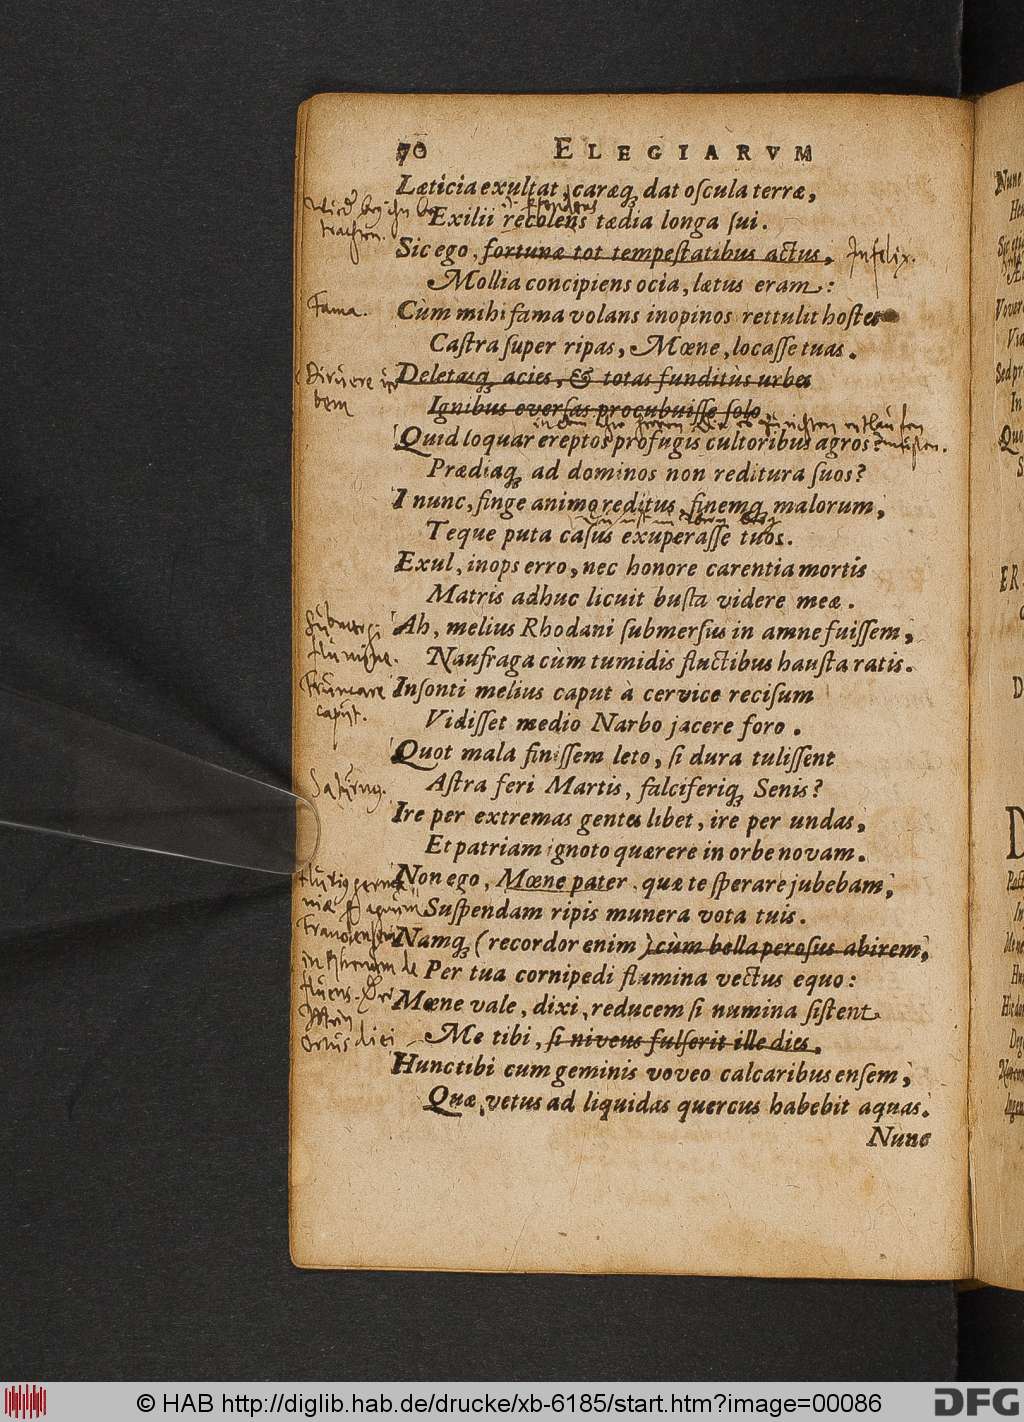 70 ELEGIARVM
Læticia exultat, caræq; dat oſcula terræ,
Exilii recolens tædia longa ſui.
Sic ego, fortunæ tot tempeſtatibus actus,
Infelix.
Mollia concipiens ocia, lætus eram:
Fama.
Cùm mihi fama volans inopinos rettulit hoſtes
Caſtra ſuper ripas, Mœne, locaſſe tuas.
Diruere ur
bem
Deletasq; acies, & totas funditùs urbes
Ignibus everſas procubuiſſe ſolo.
Quid loquar ereptos profugis cultoribus agros?
Prædiaq; ad dominos non reditura ſuos?
I nunc, finge animo reditus, finemq; malorum,
Teque puta caſus exuperaſſe tuos.
Exul, inops erro, nec honore carentia mortis
Matris adhuc licuit buſta videre meæ.
Submergi
flumine.
Ah, melius Rhodani ſubmerſus in amne fuiſſem,
Naufraga cùm tumidis fluctibus hauſta ratis.
Truncare
caput.
Inſonti melius caput à cervice reciſum
Vidiſſet medio Narbo jacere foro.
Quot mala finiſſem leto, ſi dura tuliſſent
Saturnq.
Aſtra feri Martis, falciferiq; Senis?
Ire per extremas gentes libet, ire per undas,
Et patriam ignoto quærere in orbe novam.
Non ego, Mœne pater, quæ te ſperare jubebam,
Suſpendam ripis munera vota tuis.
Namq; (recordor enim) cùm bella peroſus abirem,
Per tua cornipedi flumina vectus equo:
Mœne vale, dixi, reducem ſi numina ſiſtent
ortus diei
Me tibi, ſi niveus fulſerit ille dies,
Hunc tibi cum geminis voveo calcaribus enſem,
Quæ vetus ad liquidas quercus habebit aquas.
Nunc
© HAB http://diglib.hab.de/drucke/xb-6185/start.htm?image=00086
DFG